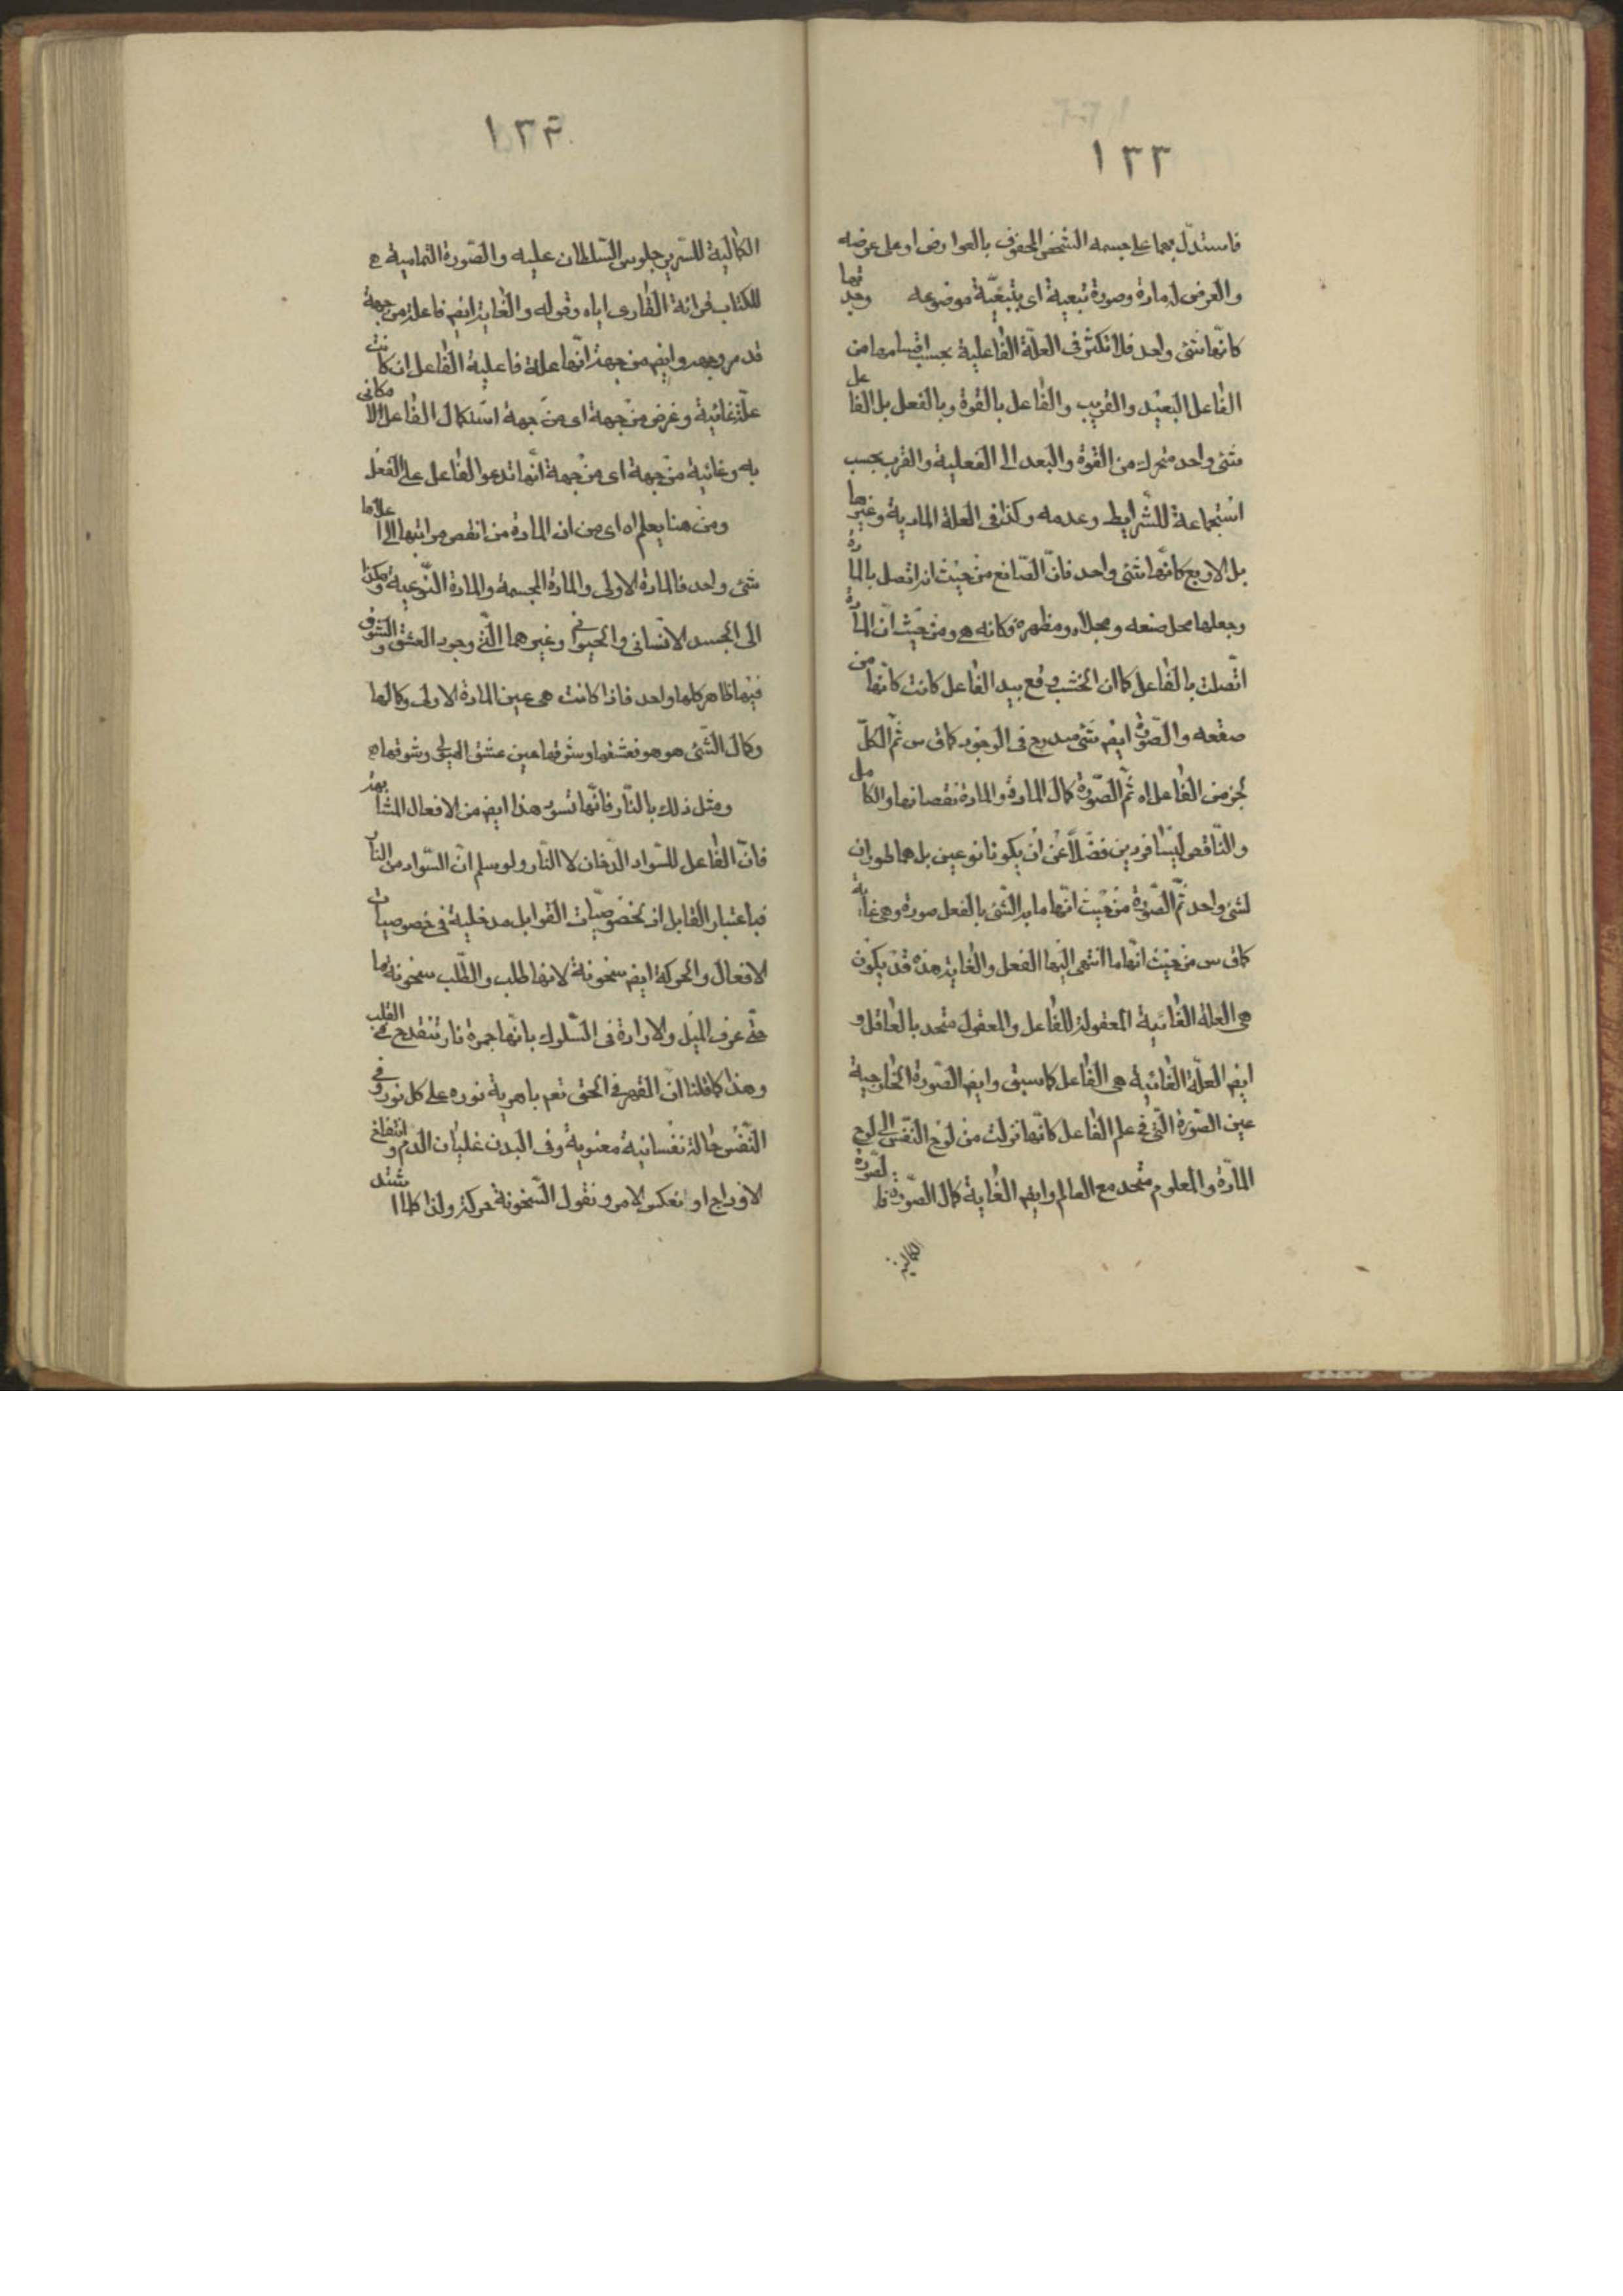 ١٣٣
فاستدلّ بهما على جسمه الشخص المحفوف بالعوارض او على عرضه
والعرض له مادة وصورة تبعية اى بتبعيّة موضوعه وجدتها
كانّها شئ واحد فلا تكثر فى العلّة الفاعلية بحسب اقسامها من
الفاعل البعيد والقريب والفاعل بالقوة وبالفعل بل الفاعل
شئ واحد متحرك من القوة والبعد الى الفعلية والقرب بحسب
استجماعة للشرايط وعدمه وكذا فى العلة المادية وغيرها
بل الاربع كانّها شئ واحد فانّ الصّانع من حيث انه اتصل بالمادة
وجعلها محل صنعه ومجلاه ومظهره فكانه هى ومن حيث انّ المادة
اتّصلت بالفاعل كما ان الخشب وقع بيد الفاعل كانت كانّها من
صقعه والصّورة ايضم شئ مبدع فى الوجود كما فى س ثم الكلّ
لجزمن الفاعل اه ثمّ الصّورة كمال المادة والمادة نقصانها والكامل
والنّاقص ليسا فردين فضلاً عن ان يكونا نوعين بل هما طوران
لشئ واحد ثمّ الصّورة من حيث انّها ما به الشّئ بالفعل صورة وهى غاية
كما فى س من حيث انّها ما انتهى اليها الفعل والغاية هذه قد يكون
هى العلة الغائية المعقولة للفاعل والمعقول متحد بالعاقل و
ايضم العلّة الغائية هى الفاعل كما سبق وايضم الصّورة الخارجية
عين الصّورة الّتى فى علم الفاعل كانّها نزلت من لوح النّفس الى لوح
المادّة والمعلوم متحد مع العالم وايضم الغاية كمال الصّورة فالصّورة
الكمالية
١٣٤
الكمالية للسّرير جلوس السّلطان عليه والصّورة التمامية
للكتاب قرائة القارى اياه وقوله والغاية ايضم فاعلة من جهة
قد مر وجهه وايضم من جهة انّها علة فاعلية الفاعل ان كانت
علّة غائية وغرض من جهة اى من جهة استكمال الفاعل الامكانى
به وغائية من جهة اى من جهة انّها تدعو الفاعل على الفعل
ومن هنا يعلم اه اى من ان المادة من انقص مراتبها الى اعلاها
شئ واحد فالمادة الاولى والمادة المجسمة والمادة النّوعية وهكذا
الى الجسد الانسانى والحيوانى وغيرهما الّتى وجود العشق والشوق
فيها ظاهر كلها واحد فاذا كانت هى عين المادة الاولى وكمالها
وكمال الشّئ هو هو فعشقها وشوقها عين عشق الهيولى وشوقها
ومثل ذلك بالنّار فانّها تسود هذا ايضم من الافعال المتشابهة
فانّ الفاعل للسّواد الدّخان لا النّار ولو سلم انّ السّواد من النّار
فباعتبار القابل اذ لخصوصيّات القوابل مدخلية فى خصوصيات
الافعال والحركة ايضم سخونة لانها طلب والطّلب سخونة ما
حتّى عرف الميل والارادة فى السّلوك بانّها جمرة نار تنقدح فى القلب
وهذا كما قلنا انّ القهر فى الحق تعم باهرية نوره على كل نور وفى
النّفس حالة نفسانية معنوية وفى البدن غليان الدّم وانتفاخ
الاوداج او نعكس الامر ونقول السّخونة حركة ولذا كلما اشتد